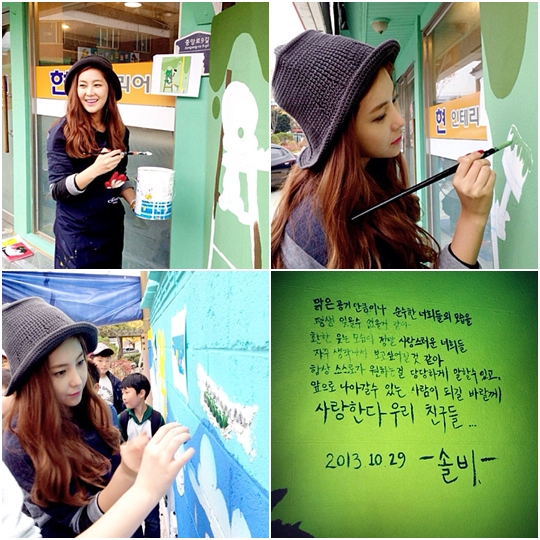 중앙로9길
현
리어
현 인테리
맑은 공기 만큼이나 순수한 너희들의 모습을
평생 잊을수 없을거 같아
환한 웃는 모습이 정말 사랑스러운 너희들
자꾸 생각나서 보고싶어질것 같아
항상 스스로가 원하는걸 당당하게 말할수있고,
앞으로 나아갈수 있는 사람이 되길 바랄게
사랑한다 우리 친구들...
2013.10.29 -솔비-